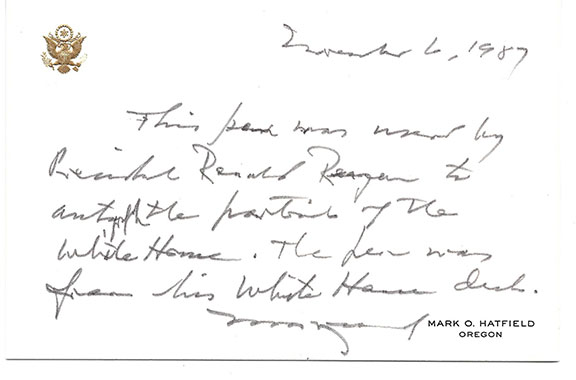 November 6, 1987
This pen was used by
President Ronald Reagan to
autograph the portrait of the
White House. The pen was
from his White House desk.
MARK O. HATFIELD
OREGON